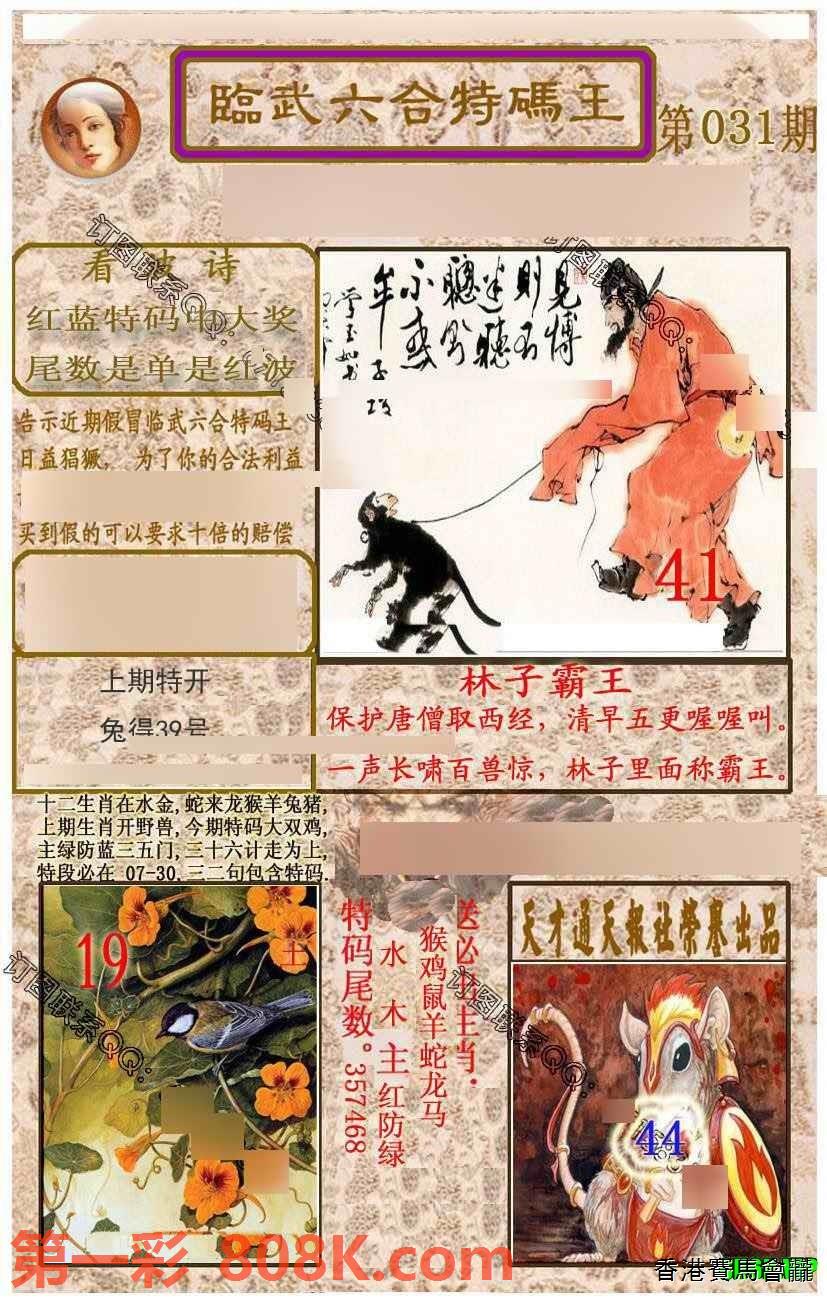 臨武六合特碼王
第031期
看波诗
红蓝特码中大奖
尾数是单是红波
告示近期假冒临武六合特码王
日益猖獗，为了你的合法利益
买到假的可以要求十倍的赔偿
上期特开
兔得39号
見博
則不
迷聽
聰則
不惑
牟子
41
林子霸王
保护唐僧取西经，清早五更喔喔叫。
一声长啸百兽惊，林子里面称霸王。
十二生肖在水金,蛇来龙猴羊兔猪,
上期生肖开野兽,今期特码大双鸡,
主绿防蓝三五门,三十六计走为上,
特段必在 07-30.三二句包含特码.
19
土
特码尾数。357468
水木主红防绿
猴鸡鼠羊蛇龙马
天才通天报社荣誉出品
44
订图联系QQ:
订图联系QQ:
订图联系QQ:
订图联系QQ:
第一彩 808K.com
香港賽馬會